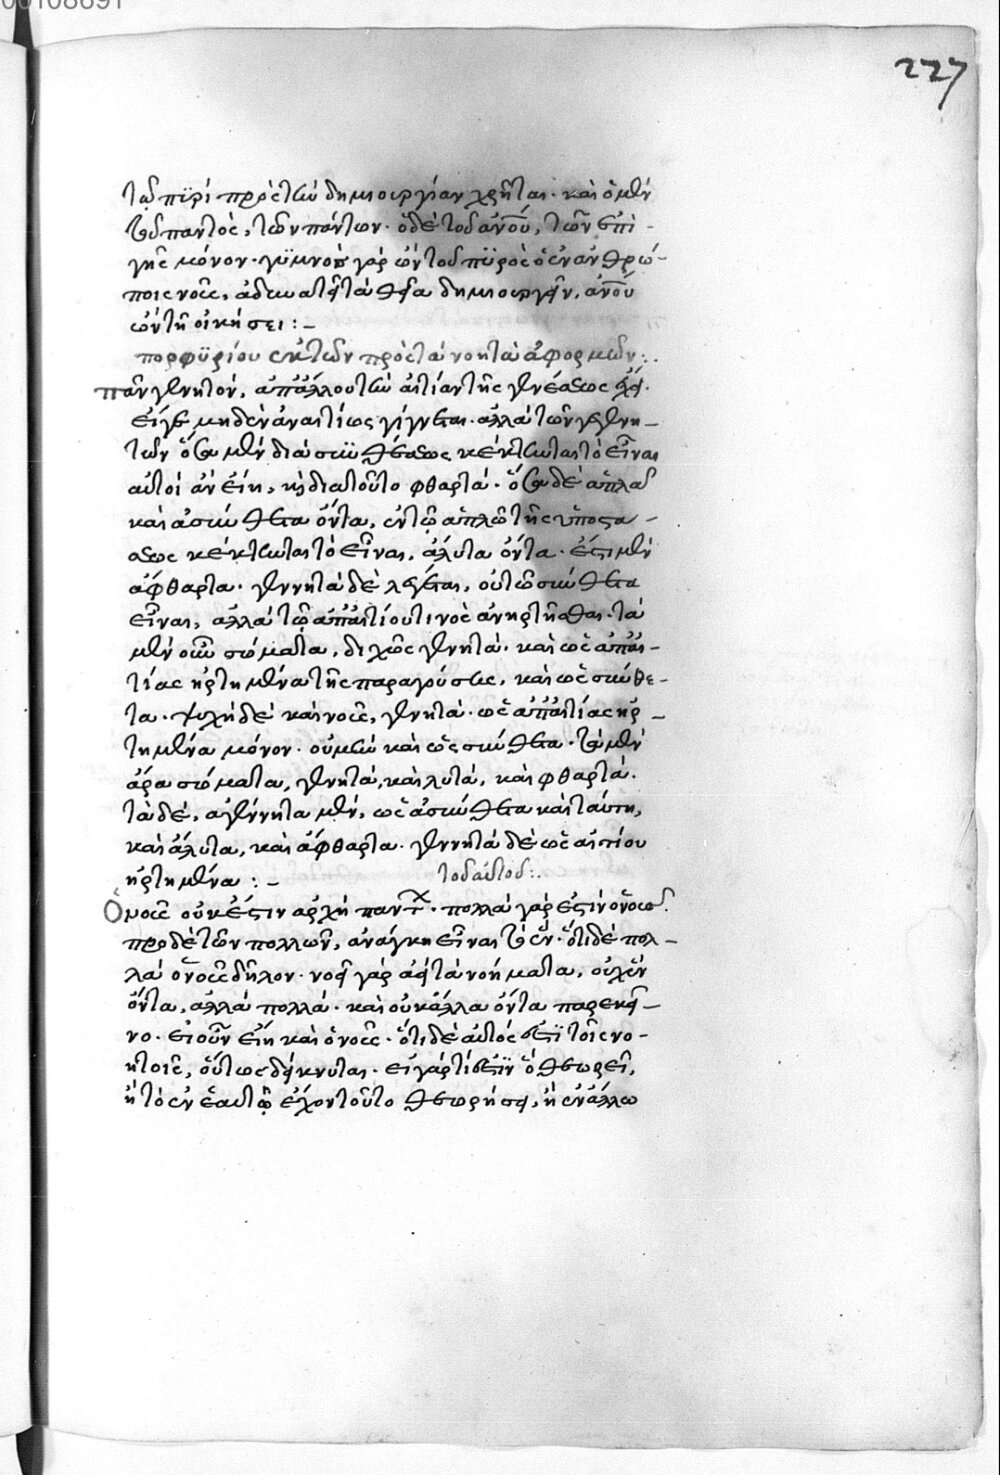 00108691
227
τῷ πυρὶ πρὸς τὴν δημιουργίαν χρῆται· καὶ ὁ μὲν
τοῦ παντὸς, τῶν πάντων· ὁ δὲ τοῦ ἀνου, τῶν ἐπὶ-
γῆς μόνον· γυμνὸς γὰρ ὢν τοῦ πυρὸς ὁ ἐν ἀνθρώ-
ποις νοῦς, ἀδυνατεῖ τὰ θεῖα δημιουργεῖν, ἀνου
ὢν τῇ οἰκήσει:-
πορφυρίου ἐκ τῶν πρὸς τὰ νοητὰ ἀφορμῶν:.
πᾶν γενητὸν, ἀπ' ἄλλου τὴν αἰτίαν τῆς γενέσεως ἔχει.
εἴγε μηδὲν ἀναιτίως γίγνεται· ἀλλὰ τῶν γε γενη-
τῶν ὅσα μὲν διὰ συνθέσεως κέκτηται τὸ εἶναι
αὐτοὶ ἂν εἴη, κὴ διατοῦτο φθαρτά· ὅσα δὲ ἁπλᾶ
καὶ ἀσύνθετα ὄντα, ἐν τῷ ἁπλῷ τῆς ὑποστα-
σεως κέκτηται τὸ εἶναι, ἄλυτα ὄντα· ἔστι μὲν
ἄφθαρτα· γεννητὰ δὲ λέγεται, οὐ τῷ σύνθετα
εἶναι, ἀλλὰ τῷ ἀπ' αἰτίου τινὸς ἀνηρτῆσθαι· τὰ
μὲν οὖν σώματα, διχῶς γενητά· καὶ ὡς ἀπ' αἰ-
τίας ἠρτημένα τῆς παραγούσης, καὶ ὡς σύνθε-
τα· ψυχὴ δὲ καὶ νοῦς, γενητὰ· ὡς ἀπ' αἰτίας ἠρ-
τημένα μόνον· οὐ μὴν καὶ ὡς σύνθετα· τὰ μὲν
ἄρα σώματα, γενητά, καὶ λυτά, καὶ φθαρτά.
τὰ δὲ, ἀγέννητα μὲν, ὡς ἀσύνθετα καὶ ταύτη,
καὶ ἄλυτα, καὶ ἄφθαρτα· γεννητὰ δὲ ὡς αἰτίου
ἠρτημένα:- τοῦ αὐτοῦ:.
Ὁ νοῦς οὐκ ἔστιν ἀρχὴ πάντων· πολλὰ γάρ ἐστιν ὁ νοῦς.
πρὸ δὲ τῶν πολλῶν, ἀνάγκη εἶναι τὸ ἕν· ὅτι δὲ πολ-
λὰ ὁ νοῦς δῆλον· νοεῖ γὰρ ἀεὶ τὰ νοήματα, οὐχ ἓν
ὄντα, ἀλλὰ πολλά· καὶ οὐκ ἄλλα ὄντα παρ' ἐκεῖ-
νο· εἰ οὖν εἴη καὶ ὁ νοῦς· ὅτι δὲ αὐτός ἐστι τοῖς νο-
ητοῖς, οὕτως δείκνυται· εἰ γάρ τι ἐστὶν ὃ θεωρεῖ,
ἤτοι ἐν ἑαυτῷ ἔχον τοῦτο θεωρήσει, ἢ ἐν ἄλλω